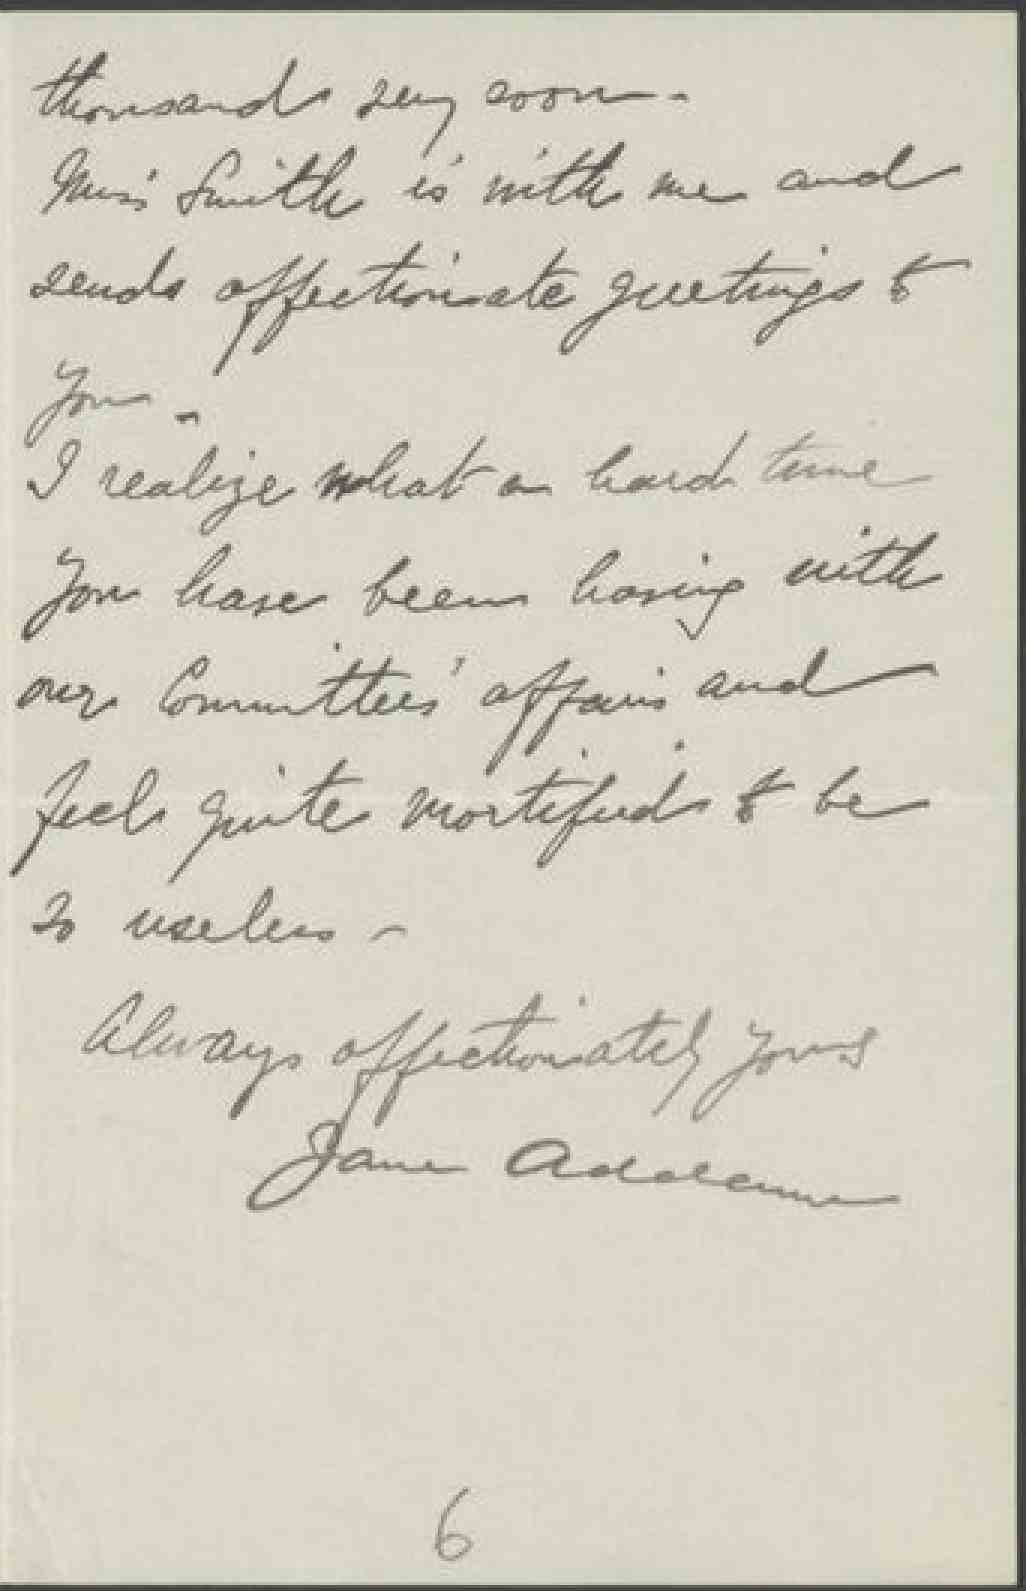 thousand very soon -
Miss Smith is with me and
sends affectionate greetings to
you -
I realize what a hard time
you have been having with
our Committee's affairs and
feel quite mortified to be
so useless -
Always affectionately yours
Jane Addams
6